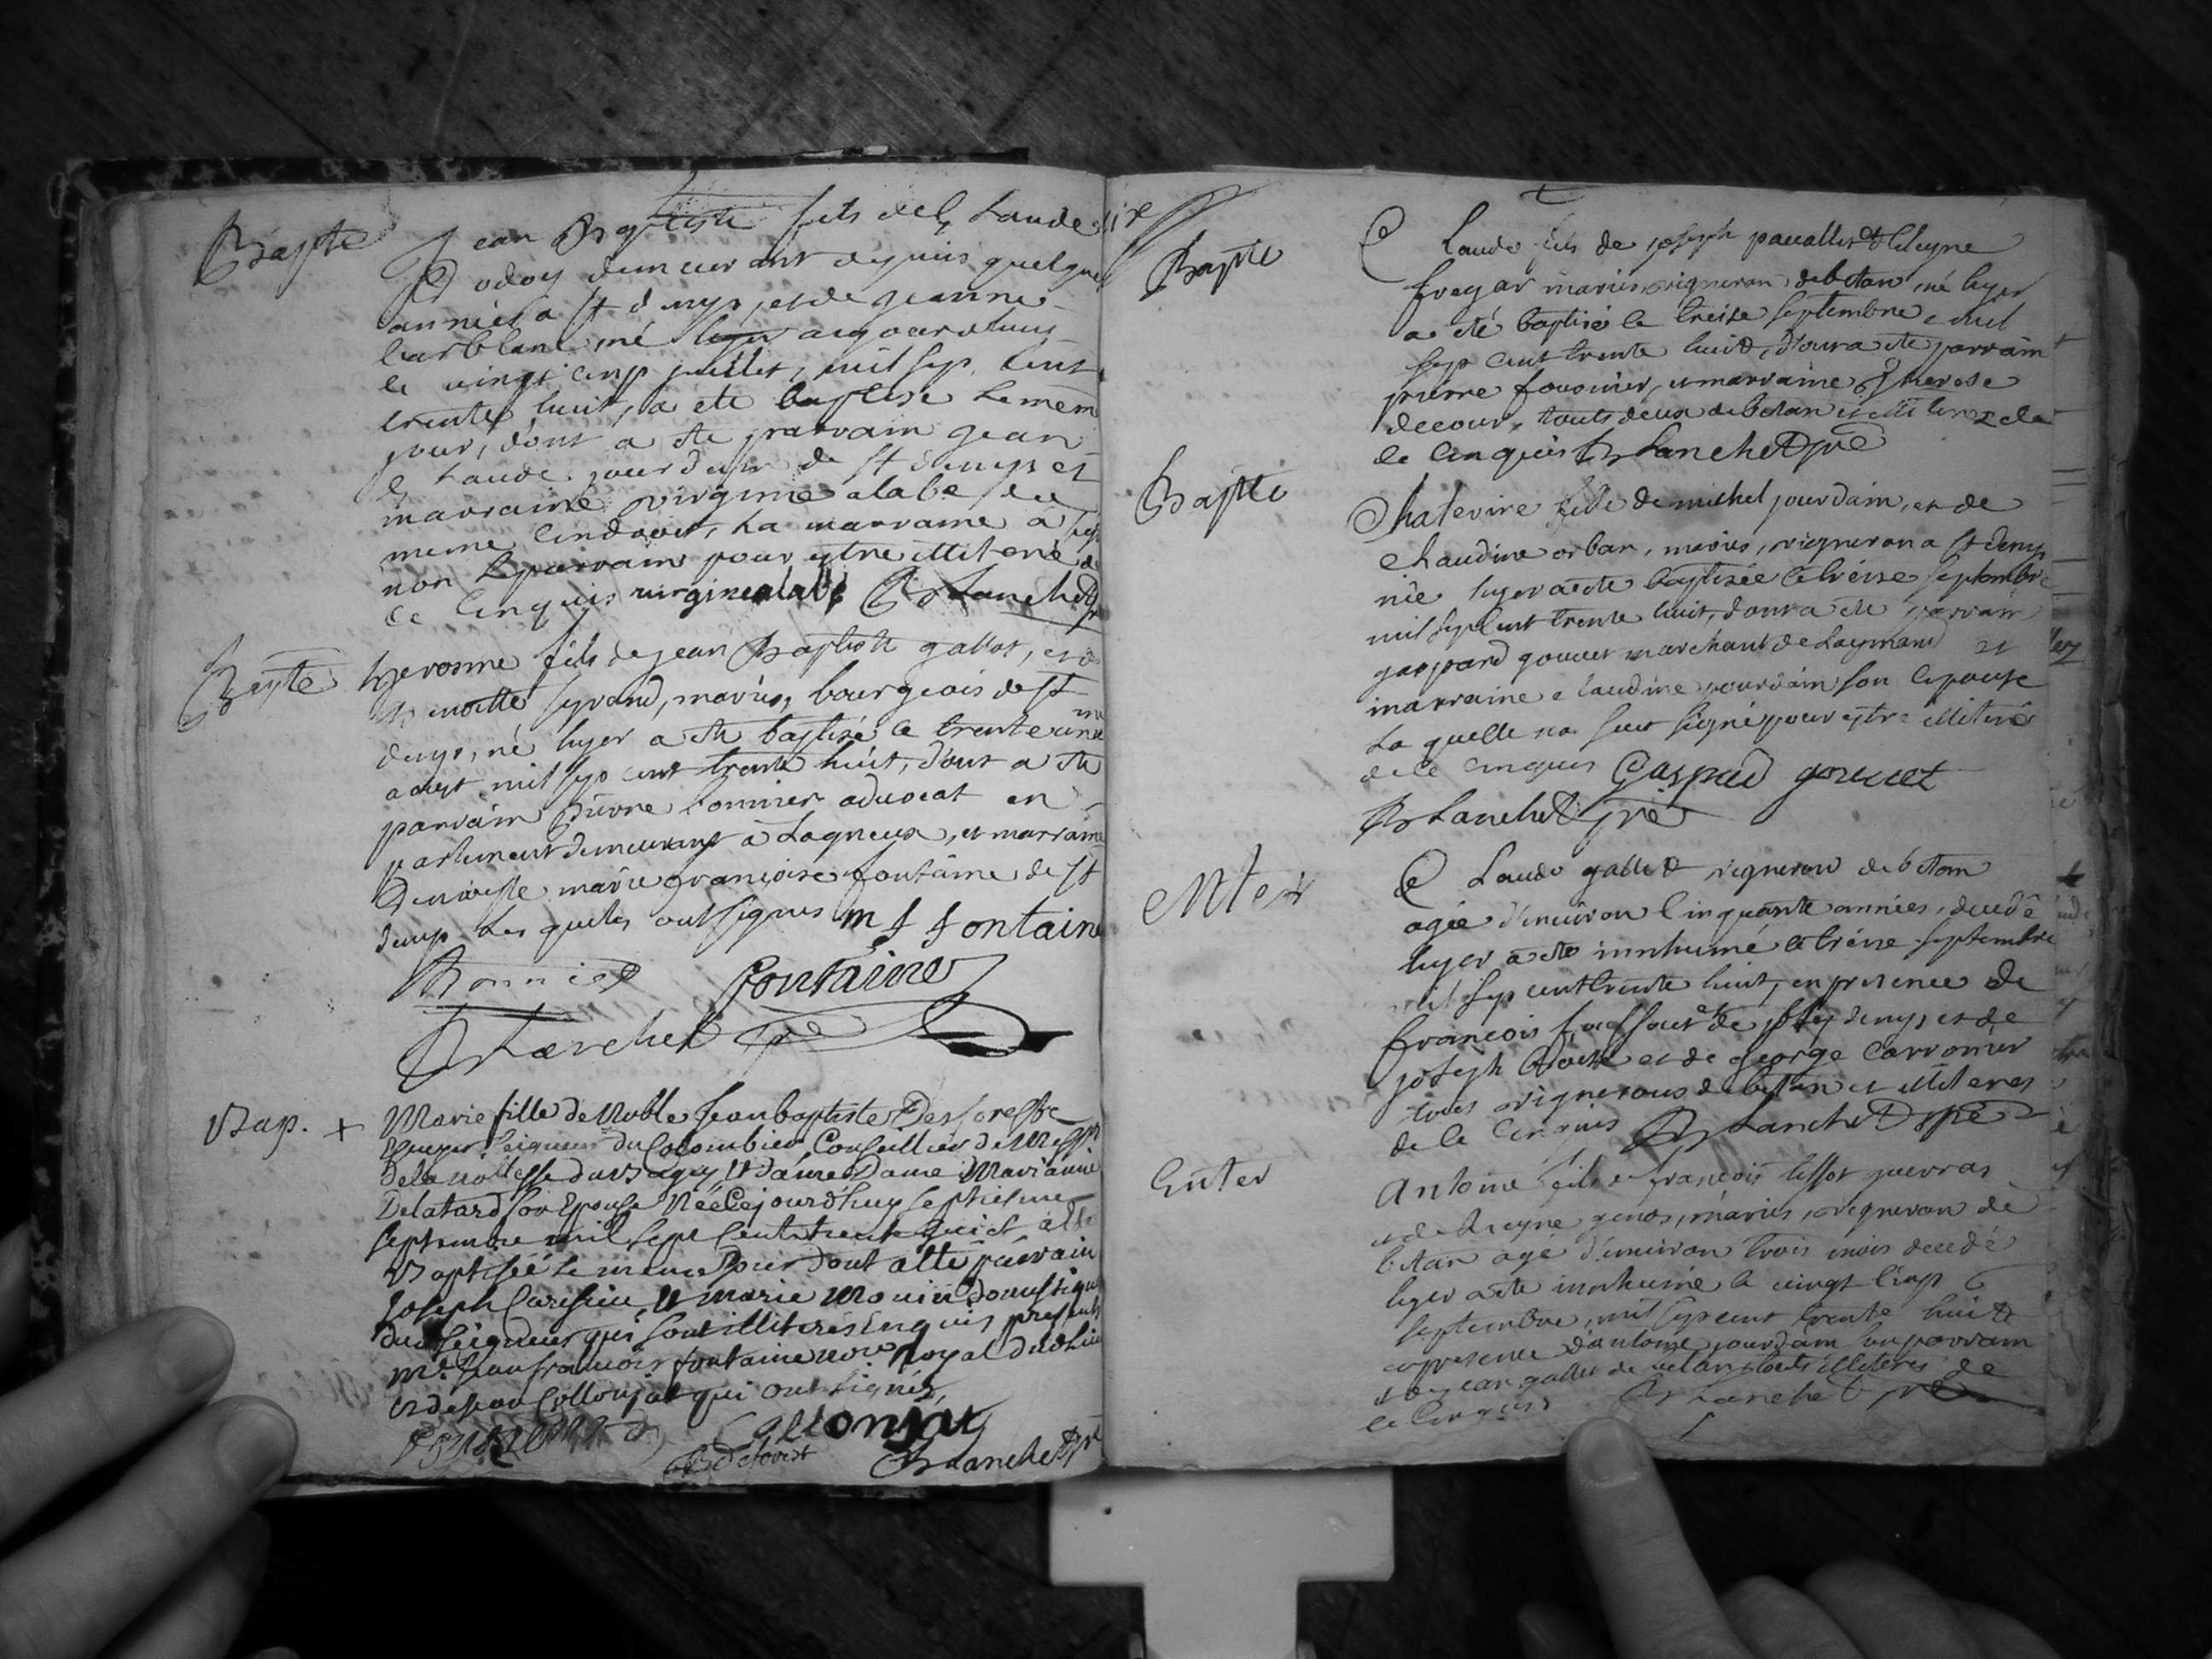 Bapte
Jean Baptiste fils de Claude
Dodoy demeurant depuis quelque
années a st denys, et de jeanne
carblanc né hyer aujourdhuy
le vingt cinq juillet, mil sept cent
trente huit, a eté baptisé le mem
jour, dont a ete parrain jean
Claude jourdain de st denys et
marraine virginie alabe du
meme endroit, la marraine a
non le parrain pour estre illiteré de
ce enquis virginealabe Blanchet
Bapte
hierosme fils de jean Baptiste gallot, et de
seyrand, mariés, bourgeois de st
denys, né hyer a ete baptisé le trente un
aoust mil sept cent trente huit, dont a ete
parrain Pierre bonnier advocat en
parlement demeurant à Lagneux, et marraine
Demoiselle marie françoise fontaine de st
denys Les quels ont signés m f fontaine
Bonnier fontaine
Blanchet pre
Bap. +
Marie fille de Noble Jean baptiste Desforeste
Escuyer seigneur du Colombier Conseiller
De la noblesse du Bugey et dame Dame Marianne
Delatard son Epouse Née Cejourdhuy septieme
septembre mil sept cent trente huict a ete
Baptisée le meme Jour dont a ete parrain
Joseph et marie domestique
dud seigneur qui sont illiterés Enquis presents
mr. Jean francois fontaine nore Royal dud lieu
et de jean Collonjat qui ont signés,
Collonjat
Blanchet pre
Bapte
Claude fils de joseph pauallet et
fregar mariés vigneron de betan né hyer
a eté baptisé le treize septembre mil
sept cent trente huit, dont a ete parrain
pierre et marraine therese
decour, touts deux de betan et illiterez de
ce enquis Blanchet pre
Bapte
Chaterine fille de michel jourdain, et de
Claudine orban, mariés, vigneron a st denys
née hyer a ete baptisée le treize septembre
mil sept cent trente huit, dont a ete parrain
gaspard gouuet marchant de et
marraine claudine jourdain son epouse
La quelle na sceu signé pour estre illiteré
de ce enquis Gaspard gouuet
Blanchet pre
Enter
Claude gallet vigneron de betan
agée d'enuiron cinquante années, decedé
hyer a ete innhumé le treize septembre
mil sept cent trente huit, en presence de
françois de st denys, et de
joseph et de george Carronier
touts vignerons de betan et illiterés
de ce enquis Blanchet pre
Enter
Antoine fils de françois tissot
et de genos, mariés, vigneron de
betan agé d'enuiron trois mois decedé
hyer a ete innhumé le vingt cinq
septembre, mil sept cent trente huit
en presence d'antoine jourdain son parrain
et de jean gallet de betan touts illiterés de
ce enquis Blanchet pre